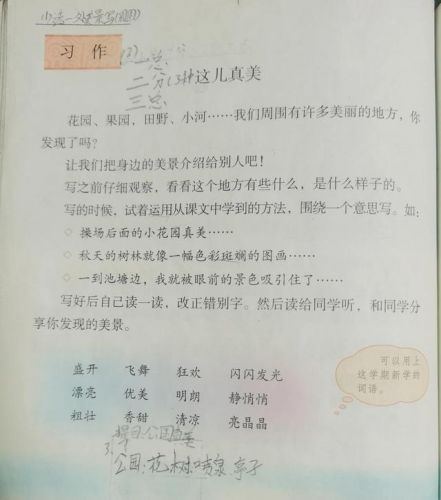 习作
一总
二分(3种 这儿真美
三总
花园、果园，田野、小河……我们周围有许多美丽的地方，你
发现了吗？
让我们把身边的美景介绍给别人吧！
写之前仔细观察，看看这个地方有些什么，是什么样子的。
写的时候，试着运用从课文中学到的方法，围绕一个意思写。如：
◇ 操场后面的小花园真美……
◇ 秋天的树林就像一幅色彩斑斓的图画……
◇ 一到池塘边，我就被眼前的景色吸引住了……
写好后自己读一读，改正错别字。然后读给同学听，和同学分
享你发现的美景。
可以用上
这学期新学的
词语。
盛开 飞舞 狂欢 闪闪发光
漂亮 优美 明朗 静悄悄
粗壮 香甜 清凉 亮晶晶
题目:公园真美
公园:花树喷泉 亭子